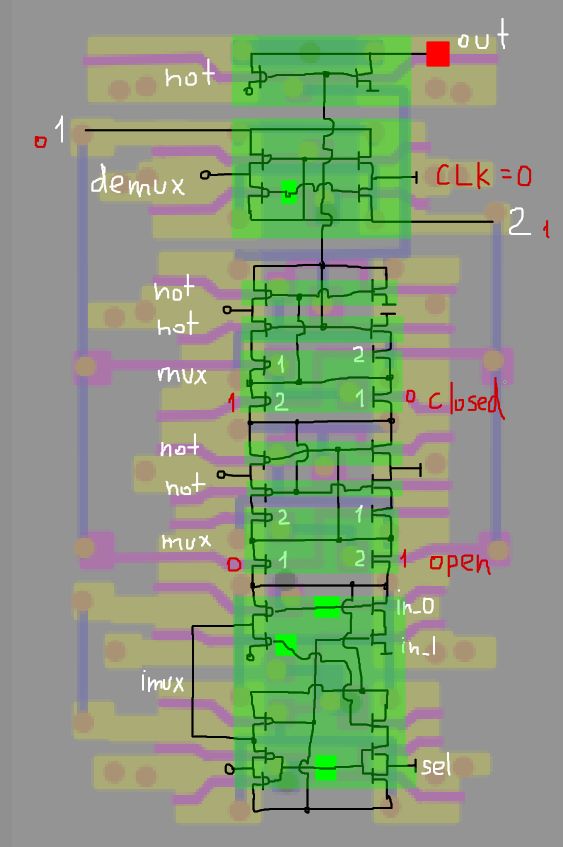 out
not
0 1
demux
CLK=0
2 1
not
not
1 2
mux
1 2 1 0 closed
not
not
2 1
mux
0 1 2 1 open
in_0
in_1
imux
sel